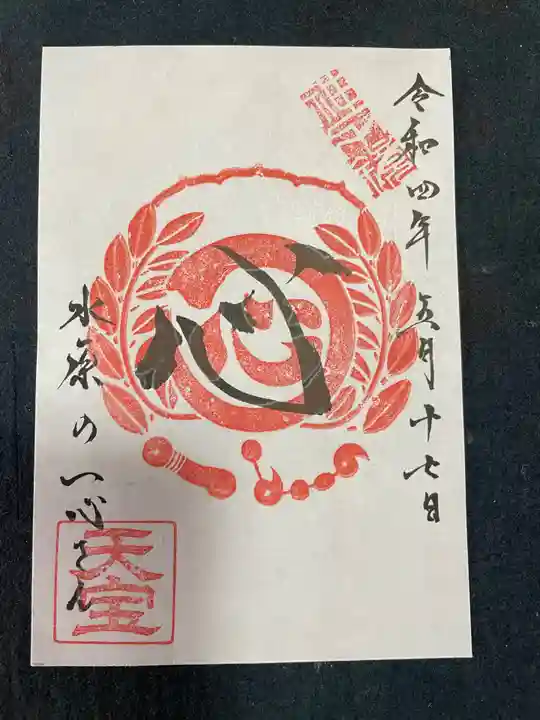 令和四年 五月十七日
心
水原の一心さん
天宝